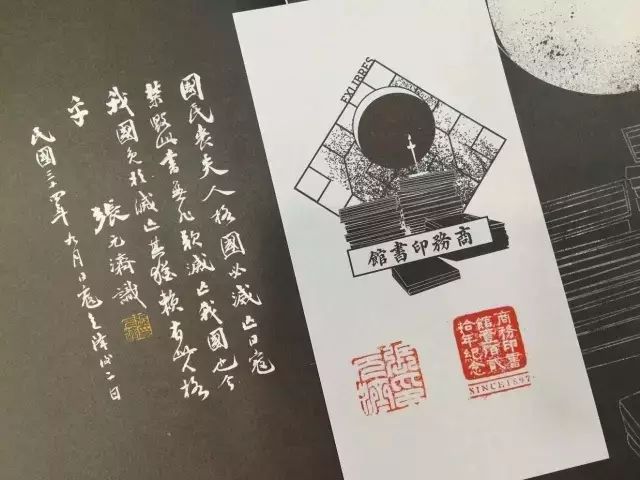 國民喪失人格國必滅亡日寇
禁此書無非欲滅亡我國也今
我國免於滅亡其猶賴有此人格
乎
張元濟識
民國三四年九月日寇降後二日
EXLIBRES
商務印書館
商務印書
館壹百貳
拾年紀念
SINCE1897